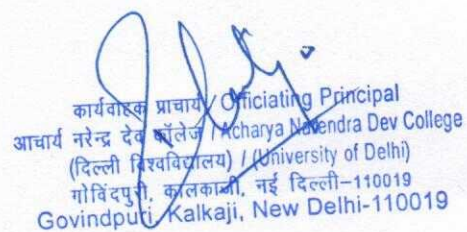 कार्यवाहक प्राचार्य / Officiating Principal
आचार्य नरेन्द्र देव कॉलेज / Acharya Narendra Dev College
(दिल्ली विश्वविद्यालय) / (University of Delhi)
गोविंदपुरी, कालकाजी, नई दिल्ली-110019
Govindpuri, Kalkaji, New Delhi-110019